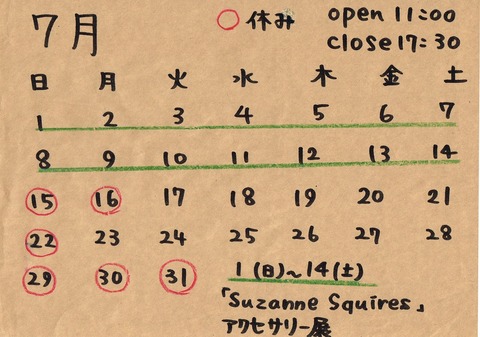 7月 ○休み open 11:00
close 17:30
日 月 火 水 木 金 土
1 2 3 4 5 6 7
8 9 10 11 12 13 14
15 16 17 18 19 20 21
22 23 24 25 26 27 28
29 30 31 1(日)~14(土)
「Suzanne Squires」
アクセサリー展